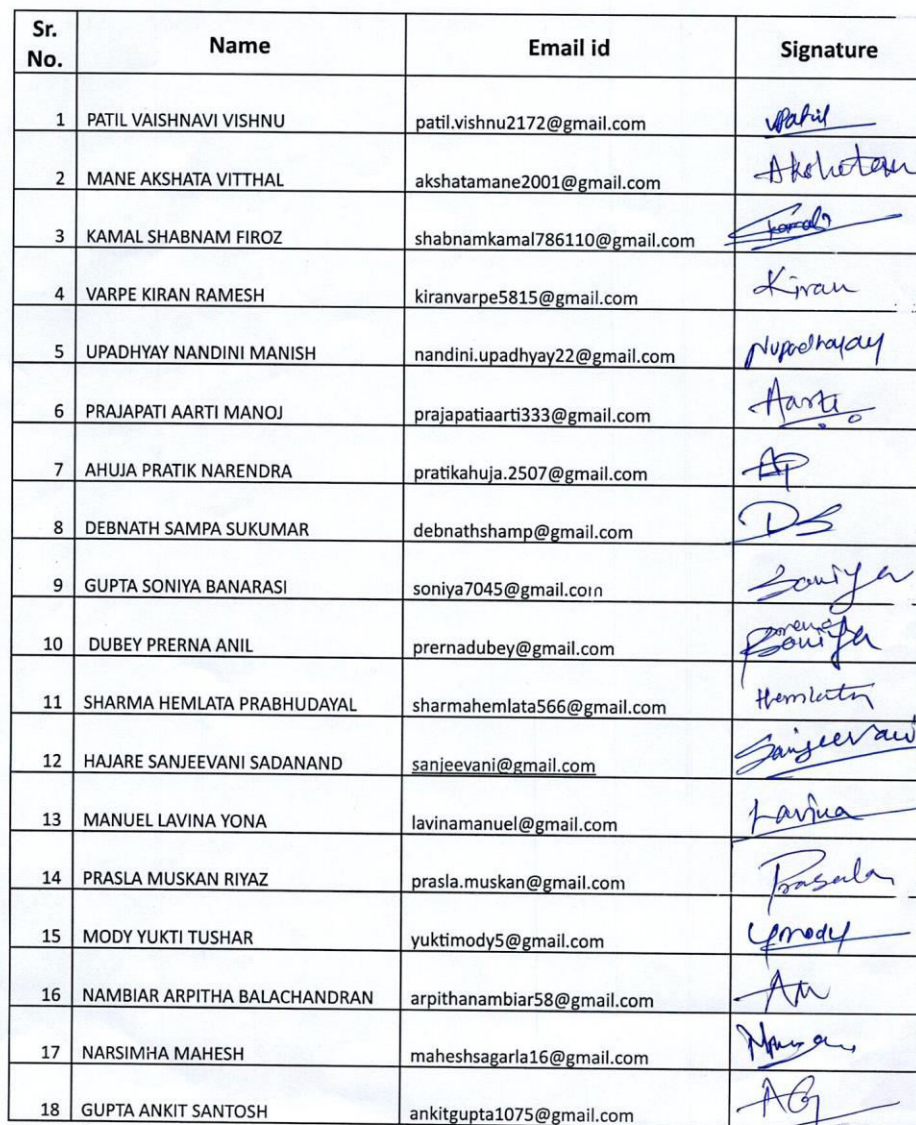 Sr. No. Name Email id Signature
1 PATIL VAISHNAVI VISHNU patil.vishnu2172@gmail.com vpatil
2 MANE AKSHATA VITTHAL akshatamane2001@gmail.com
3 KAMAL SHABNAM FIROZ shabnamkamal786110@gmail.com
4 VARPE KIRAN RAMESH kiranvarpe5815@gmail.com Kiran
5 UPADHYAY NANDINI MANISH nandini.upadhyay22@gmail.com Nupadhayay
6 PRAJAPATI AARTI MANOJ prajapatiaarti333@gmail.com Aarti
7 AHUJA PRATIK NARENDRA pratikahuja.2507@gmail.com AP
8 DEBNATH SAMPA SUKUMAR debnathshamp@gmail.com DS
9 GUPTA SONIYA BANARASI soniya7045@gmail.com Soniya
10 DUBEY PRERNA ANIL prernadubey@gmail.com
11 SHARMA HEMLATA PRABHUDAYAL sharmahemlata566@gmail.com Hemlata
12 HAJARE SANJEEVANI SADANAND sanjeevani@gmail.com Sanjeevani
13 MANUEL LAVINA YONA lavinamanuel@gmail.com Lavina
14 PRASLA MUSKAN RIYAZ prasla.muskan@gmail.com
15 MODY YUKTI TUSHAR yuktimody5@gmail.com Ymody
16 NAMBIAR ARPITHA BALACHANDRAN arpithanambiar58@gmail.com
17 NARSIMHA MAHESH maheshsagarla16@gmail.com
18 GUPTA ANKIT SANTOSH ankitgupta1075@gmail.com AG